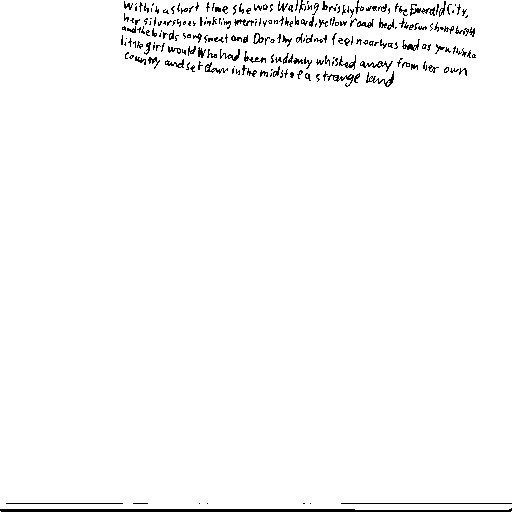 Within a short time she was walking briskly towards the Emerald City,
her silver shoes tinkling merrily on the hard, yellow road bed. The sun shone bright
and the birds sang sweet and Dorothy did not feel nearly as bad as you think a
little girl would who had been suddenly whisked away from her own
country and set down in the midst of a strange land